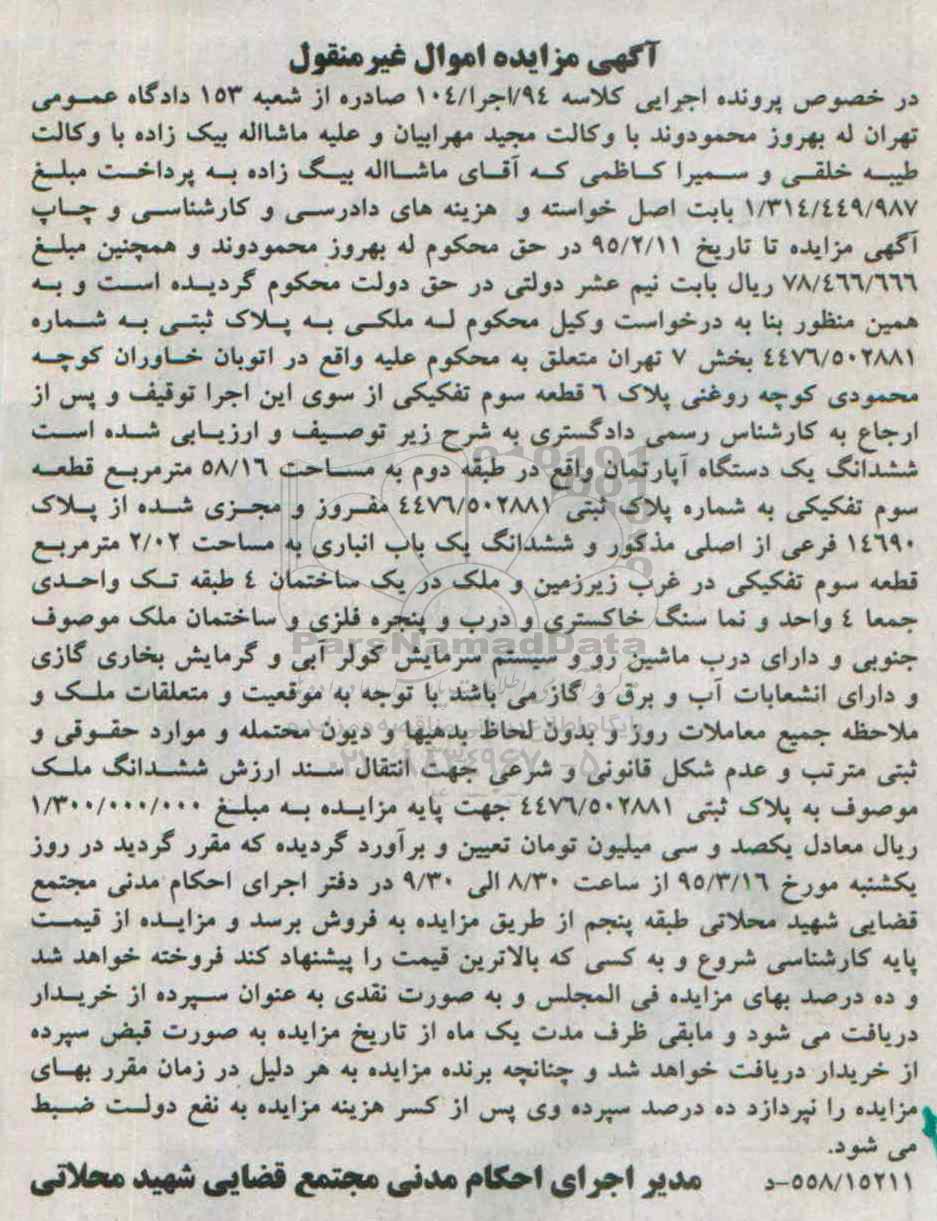 آگهی مزایده اموال غیرمنقول
در خصوص پرونده اجرایی کلاسه ۹٤/اجرا/۱۰٤ صادره از شعبه ۱٥۳ دادگاه عمومی
تهران له بهروز محمودوند با وکالت مجید مهرابیان و علیه ماشااله بیک زاده با وکالت
طیبه خلقی و سمیرا کاظمی که آقای ماشااله بیگ زاده به پرداخت مبلغ
۱/۳۱٤/٤٤۹/۹۸۷ بابت اصل خواسته و هزینه های دادرسی و کارشناسی و چاپ
آگهی مزایده تا تاریخ ۹٥/۲/۱۱ در حق محکوم له بهروز محمودوند و همچنین مبلغ
۷۸/٤٦٦/٦٦٦ ریال بابت نیم عشر دولتی در حق دولت محکوم گردیده است و به
همین منظور بنا به درخواست وکیل محکوم له ملکی به پلاک ثبتی به شماره
٤٤۷٦/٥۰۲۸۸۱ بخش ۷ تهران متعلق به محکوم علیه واقع در اتوبان خاوران کوچه
محمودی کوچه روغنی پلاک ٦ قطعه سوم تفکیکی از سوی این اجرا توقیف و پس از
ارجاع به کارشناس رسمی دادگستری به شرح زیر توصیف و ارزیابی شده است
ششدانگ یک دستگاه آپارتمان واقع در طبقه دوم به مساحت ٥۸/۱٦ مترمربع قطعه
سوم تفکیکی به شماره پلاک ثبتی ٤٤۷٦/٥۰۲۸۸۱ مفروز و مجزی شده از پلاک
۱٤٦۹۰ فرعی از اصلی مذکور و ششدانگ یک باب انباری به مساحت ۲/۰۲ مترمربع
قطعه سوم تفکیکی در غرب زیرزمین و ملک در یک ساختمان ٤ طبقه تک واحدی
جمعا ٤ واحد و نما سنگ خاکستری و درب و پنجره فلزی و ساختمان ملک موصوف
ParsNamadData
جنوبی و دارای درب ماشین رو و سیستم سرمایش کولر آبی و گرمایش بخاری گازی
و دارای انشعابات آب و برق و گاز می باشد با توجه به موقعیت و متعلقات ملک و
ملاحظه جمیع معاملات روز و بدون لحاظ بدهیها و دیون محتمله و موارد حقوقی و
ثبتی مترتب و عدم شکل قانونی و شرعی جهت انتقال سند ارزش ششدانگ ملک
موصوف به پلاک ثبتی ٤٤۷٦/٥۰۲۸۸۱ جهت پایه مزایده به مبلغ ۱/۳۰۰/۰۰۰/۰۰۰
ریال معادل یکصد و سی میلیون تومان تعیین و برآورد گردیده که مقرر گردید در روز
یکشنبه مورخ ۹٥/۳/۱٦ از ساعت ۸/۳۰ الی ۹/۳۰ در دفتر اجرای احکام مدنی مجتمع
قضایی شهید محلاتی طبقه پنجم از طریق مزایده به فروش برسد و مزایده از قیمت
پایه کارشناسی شروع و به کسی که بالاترین قیمت را پیشنهاد کند فروخته خواهد شد
و ده درصد بهای مزایده فی المجلس و به صورت نقدی به عنوان سپرده از خریدار
دریافت می شود و مابقی ظرف مدت یک ماه از تاریخ مزایده به صورت قبض سپرده
از خریدار دریافت خواهد شد و چنانچه برنده مزایده به هر دلیل در زمان مقرر بهای
مزایده را نپردازد ده درصد سپرده وی پس از کسر هزینه مزایده به نفع دولت ضبط
می شود.
٥٥۸/۱٥۲۱۱-د مدیر اجرای احکام مدنی مجتمع قضایی شهید محلاتی